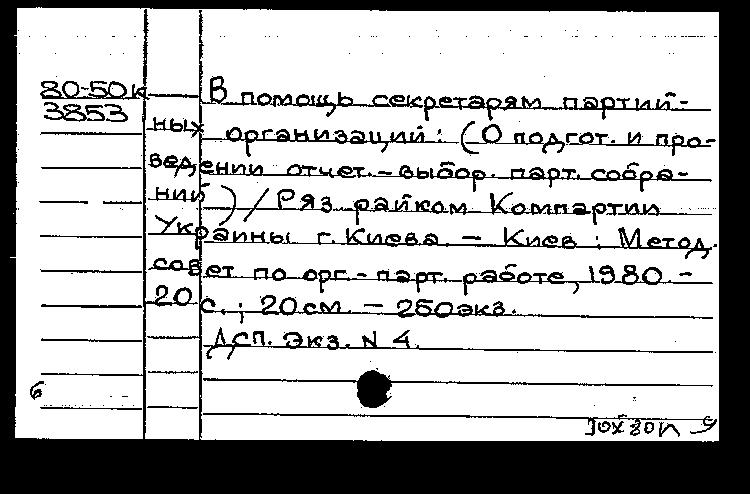 80-50к
3853
В помощь секретарям партий-
ных организаций: (О подгот. и про-
ведении отчет.-выбор. парт. собра-
ний) / Ряз. райком Компартии
Украины г. Киева. — Киев : Метод.
совет по орг.-парт. работе, 1980. -
20 с. ; 20 см. — 250 экз.
ДСП. Экз. N 4.
6